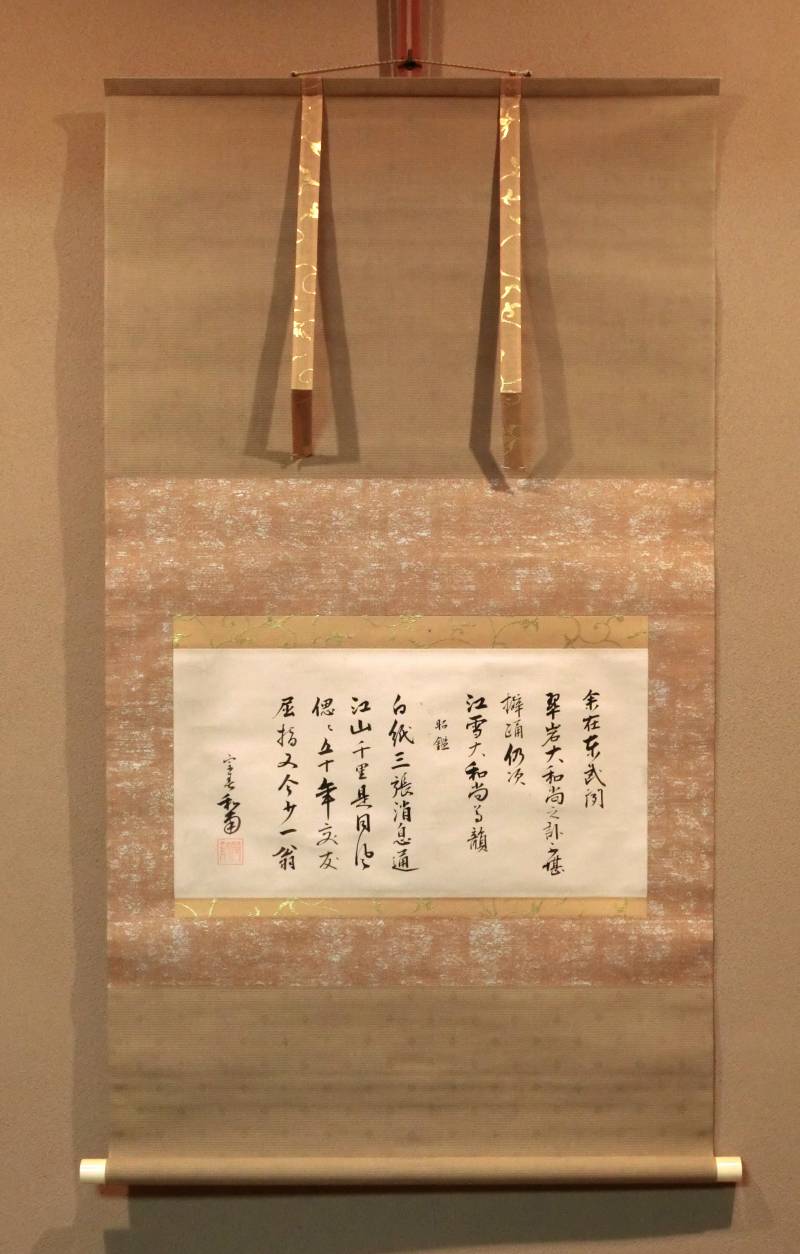 余在東武聞
翠岩大和尚之訃不堪
擗踊仍次
江雪大和尚高韻
昭鑑
白紙三張消息通
江山千里是同風
偲〻五十年交友
屈指又今少一翁